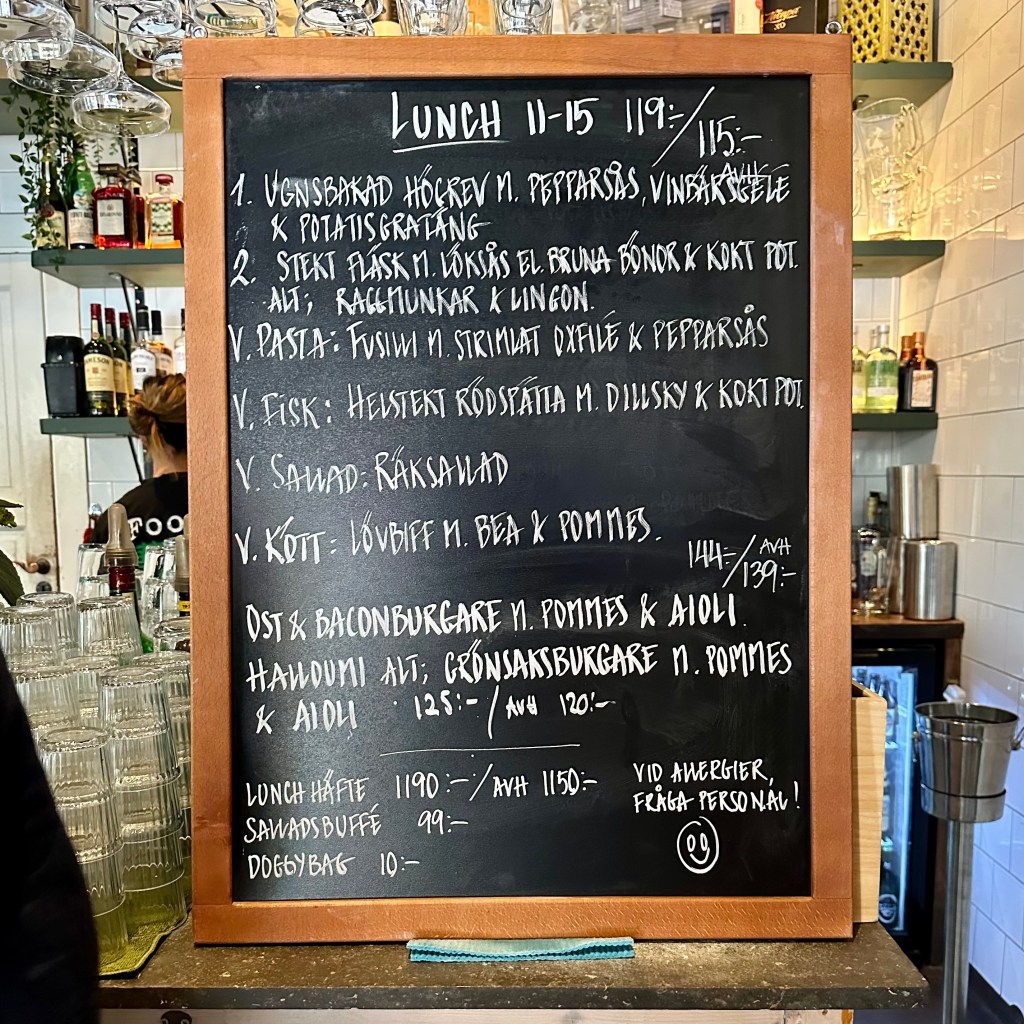 LUNCH 11-15 119:-/115:-
AVH
1. UGNSBAKAD HÖGREV M. PEPPARSÅS, VINBÄRSGELÉ
& POTATISGRATÄNG
2. STEKT FLÄSK M. LÖKSÅS EL. BRUNA BÖNOR & KOKT POT.
ALT; RAGGMUNKAR & LINGON.
V. PASTA: FUSILLI M. STRIMLAT OXFILÉ & PEPPARSÅS
V. FISK: HELSTEKT RÖDSPÄTTA M. DILLSKY & KOKT POT.
V. SALLAD: RÄKSALLAD
V. KÖTT: LÖVBIFF M. BEA & POMMES.
144:-/AVH 139:-
OST & BACONBURGARE M. POMMES & AIOLI.
HALLOUMI ALT; GRÖNSAKSBURGARE M. POMMES
& AIOLI 125:-/AVH 120:-
LUNCH HÄFTE 1190:-/AVH 1150:-
SALLADSBUFFÉ 99:-
DOGGYBAG 10:-
VID ALLERGIER,
FRÅGA PERSONAL!
FOO
JAMESON
XO